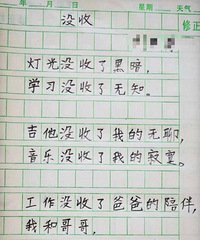 年 月 日 星期 天气
没收
修正
灯光没收了黑暗，
学习没收了无知。
吉他没收了我的无聊，
音乐没收了我的寂寞。
工作没收了爸爸的陪伴，
我和哥哥，